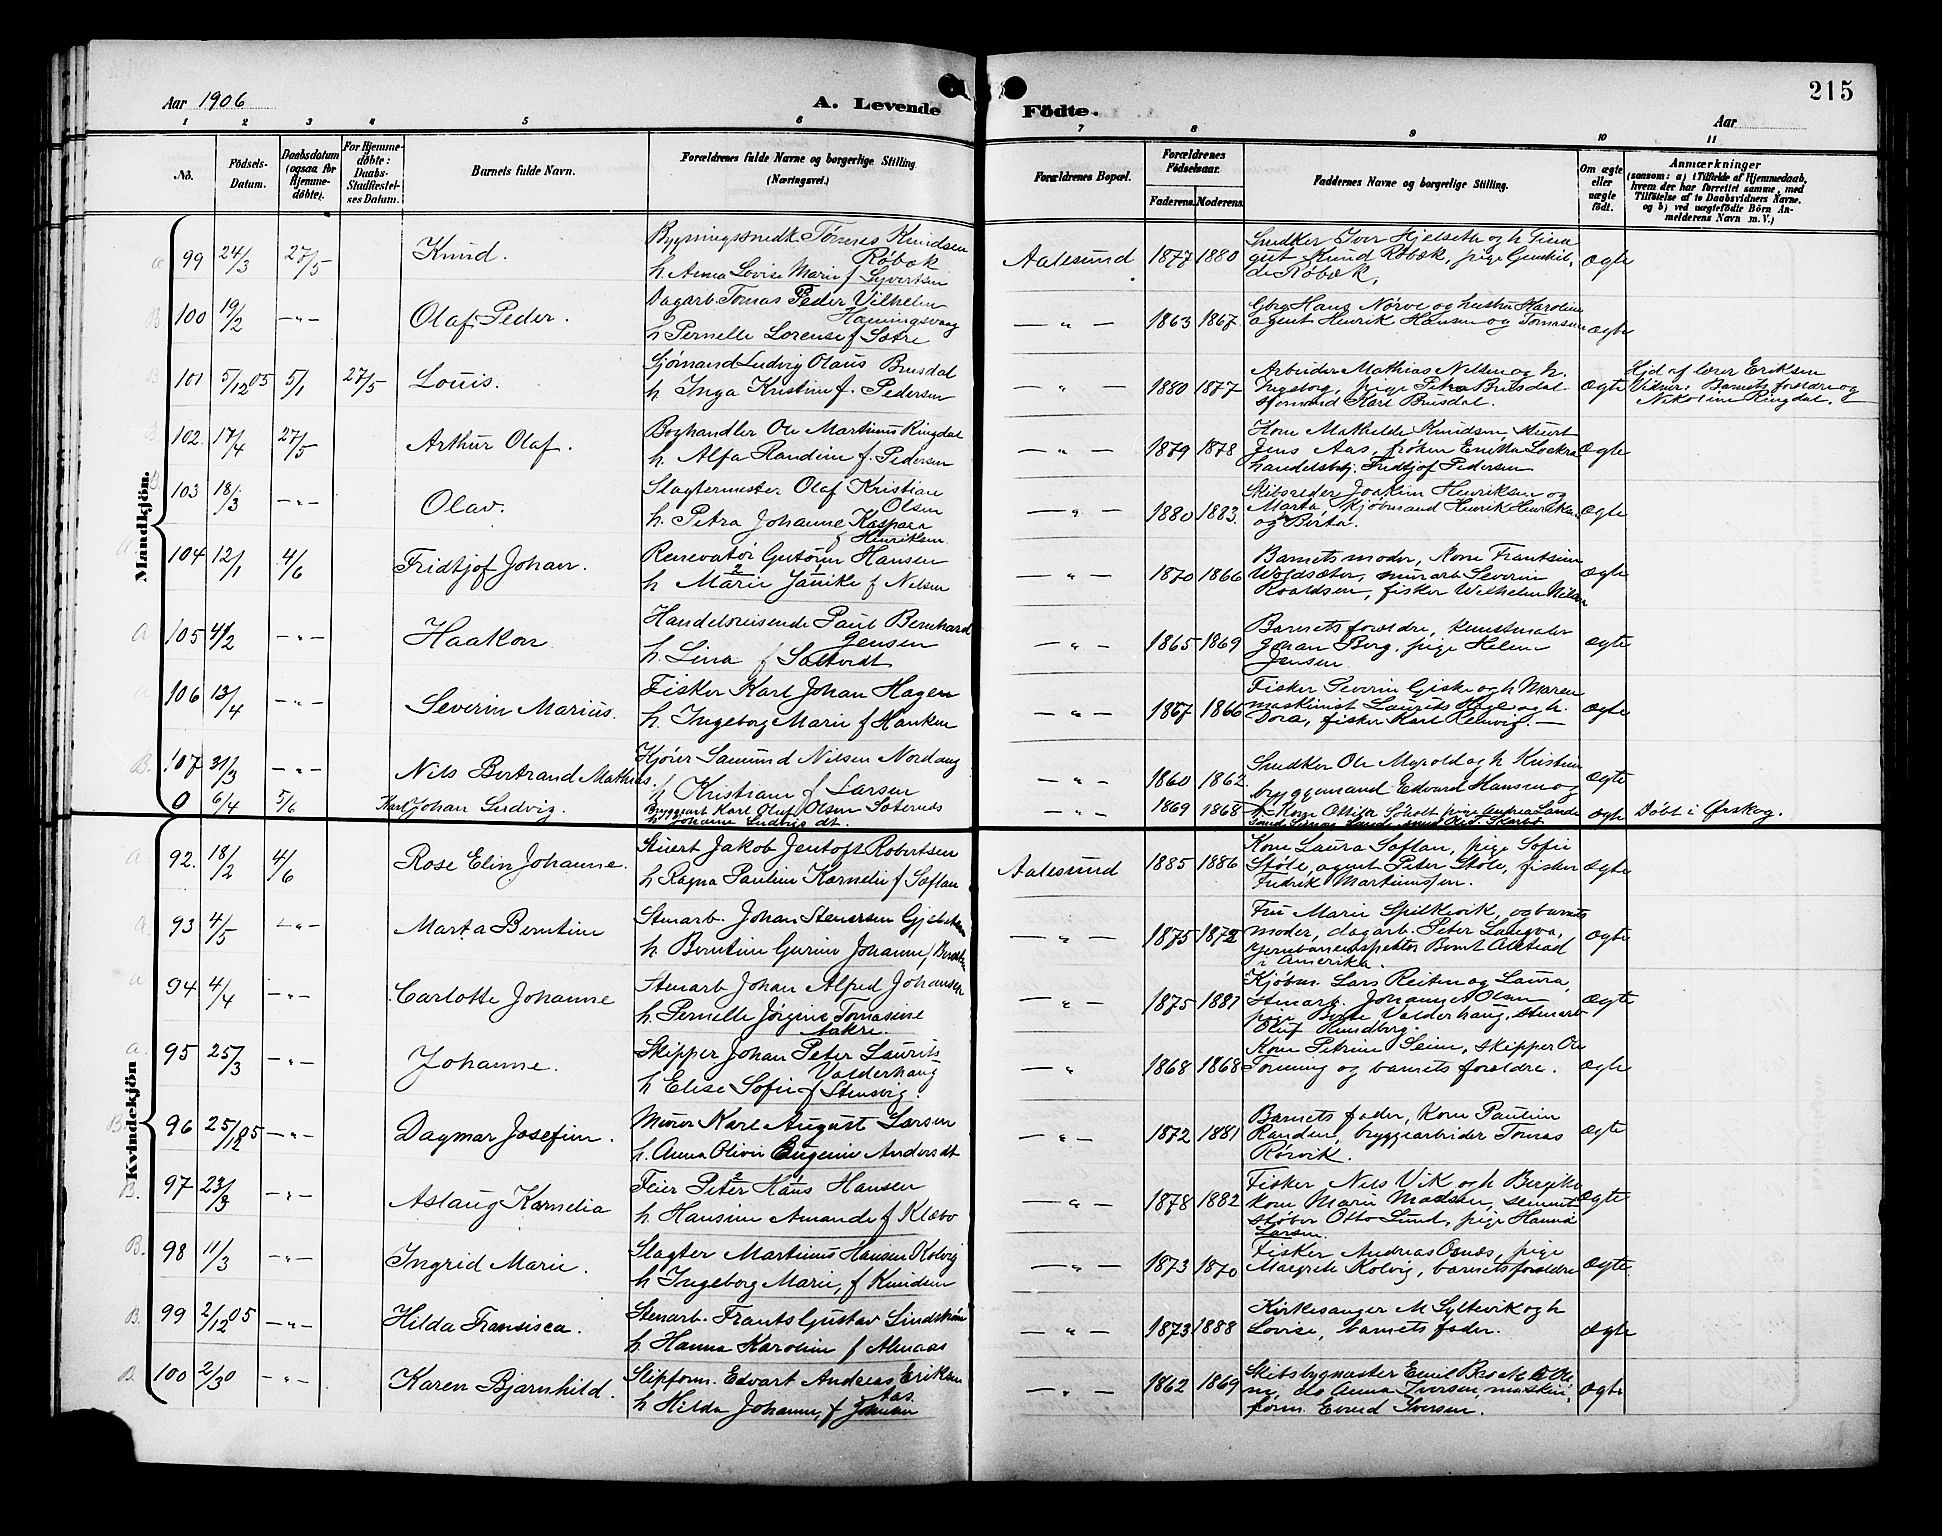 215
Aar 1906
A. Levende
Födte.
Aar
1 2 3 4 5 6 7 8 9 10 11
No.
Födsels-Datum.
Daabsdatum (ogsaa for Hjemmedöbte).
For Hjemmedöbte: Daabs-Stadfæstelses Datum.
Barnets fulde Navn.
Forældrenes fulde Navne og borgerlige Stilling
(Næringsvei.)
Forældrenes Bopæl.
Forældrenes Födselsaar.
Faderens. Moderens.
Faddernes Navne og borgerlige Stilling.
Om ægte eller uægte födt.
Anmærkninger
(saasom: a) i Tilfælde af Hjemmedaab, hvem der har forrettet samme, med Tilföielse af to Daabsvidners Navne. og b) ved uægtefödte Börn Anmelderens Navn m. V.)
Mandkjön.
a 99 24/3 27/5 Knud. Bygningssnedk. Tømes Knudsen
Røbæk
h. Anna Lovise Marie f. Syvertsen
Aalesund 1877 1880 Snedker Iver Hjelseth og h. Gina
gut Knud Røbæk, pige
de Røbæk, ægte
B 100 19/2 -"- Olaf Peder. Dagarb. Tomas Peder Vilhelm
Hamingsvaag
h. Pernelle Lorense f. Sætre
— " — 1863 1867 Gbrg Hans Nørve og hustru Karoline
agent Henrik Hansen og Tomasine ægte
B 101 5/12 05 5/1 27/5 Louis. Sjømand Ludvig Olaus Brusdal
h. Inga Kristine f. Pedersen
— " — 1880 1877 Arbeider Mathias Nilsen og h.
Ingeborg, pige Petra Brusdal
sjømand Karl Brusdal. ægte
Hjd af lærer Eriksen
Vidner: Barnets forældre og
Nikoline Ringdal.
B 102. 17/4 27/5 Arthur Olaf. Boghandler Ole Martinus Ringdal
h. Alfa Randine f. Pedersen
— " — 1879 1878 Kone Mathilde Knudsen, stuert
Jens Aas, frøken Enikka Lockra
handelsbtj. Fridtjof Pedersen ægte
B. 103 18/3 -"- Olav. Slagtermester Olaf Kristian
Olsen
h. Petra Johanne Kaspara
f Henriksen
— " — 1880 1883. Skibsreder Joakim Henriksen og
Marta, kjøbmand Henrik Henriksen
og Berta. ægte
a 104 12/1 4/6 Fridtjof Johan. Renovatør Guttorm Hansen
h. Marie Janike f Nilsen
— " — 1870 1866 Barnets moder, Kone Frantsine
Woldsæter, murarb Severin
Roaldsen, fisker Wilhelm Nilsen ægte
a 105 4/2 -"- Haakon Handelsreisende Paul Bernhard
Jensen
h. Lina f Saltvedt
— " — 1865 1869 Barnets forældre, kunstmaler
Johan Berg, pige Helene
Jensen. ægte
a 106 13/4 -"- Severin Marius. Fisker Karl Johan Hagen
h. Ingeborg Marie f Hanken
— " — 1867 1866 Fisker Severin Giske og h Maren
maskinist Laurits Hage og h.
Dora, fisker Karl Rønvig. — ægte
B. 107 31/3 -"- Nils Bertrand Mathias. Kjører Samund Nilsen Nordang
h Kristiane f Larsen
— " — 1860 1862. Snedker Ole Myrold og h Kristine
byggemand Edvard Hansen og ægte
0 6/4 5/6 Karl Johan Ludvig. Bryggearb Karl Oluf Olsen Sæternes
h Johanne Ludvigsdt.
— " — 1869 1868 ægte Døbt i Ørskog.
Kvindekjön
a. 92. 18/2 4/6 Rose Elin Johanne. Stuert Jakob Jentoft Robertsen
h Ragna Pauline Kornelie f Saftan
Aalesund 1885 1886 Kone Laura Saftan, pige Sofie
Støle, agent Peter Støle, fisker
Fredrik Martinussen. ægte
a. 93 4/5 -"- Marta Berntine Stenarb. Johan Stenersen Gjelsten
h. Berntine Gurine Johanne f Berntsen
— " — 1875 1872 Fru Marie Spilkevik, og barnets
moder, dagarb. Peter Langva,
jernbaneinspektør Bernt Alstad
i Amerika. ægte
a 94 4/4 -"- Carlotte Johanne Stenarb Johan Alfred Johansen
h. Pernelle Jørgine Tomasine
Aakre.
— " — 1875 1881 Kjøbm. Lars Reiten og Laura,
stenarb. Johannes Olsen
pige Berte Valderhaug, stenarb
Oluf Rundberg. ægte
a. 95 25/3 -"- Johanne. Skipper Johan Peter Laurits
Valderhaug
h Elise Sofie f Stensvig.
— " — 1868 1868 Kone Petrine Seim, skipper Ole
Tønning og barnets forældre. ægte
B. 96 25/12 05 -"- Dagmar Josefine. Murer Karl August Larsen
h. Anna Olivie Eugenie Andersdt
— " — 1872 1881 Barnets fader, Kone Pauline
Randen, bryggearbeider Tomas
Rørvik. ægte
B. 97 23/3 -"- Aslaug Kornelia Feier Peter Haus Hansen
h. Hansine Amande f Klæbo
— " — 1878 1882 Fisker Nils Vik og h Bergitte
kone Marie Madsen, sement
støber Otto Lund, pige Hanna
Larsen. ægte
B. 98 11/3 -"- Ingrid Marie. Slagter Martinus Hansen Kolvig
h Ingeborg Marie, f Knudsen
— " — 1873 1870 Fisker Andreas Osnæs, pige
Margrete Kolvig, barnets forældre ægte.
B. 99 2/12 05 -"- Hilda Fransisca. Stenarb. Frants Gustav Lindstrøm
h Hanna Karoline f Almaas
— " — 1873 1888 Kirkesanger M Syltevik og h
Lovise, barnets fader. ægte
B 100 2/30 -"- Karen Bjarnhild. Slipform. Edvart Andreas Eriksen
Aas.
h Hilda Johanne, f Johnsen
— " — 1862 1869 Skibsbygmester Emil Brock
do Anna Iversen, maskin
form. Evind Iversen. ægte